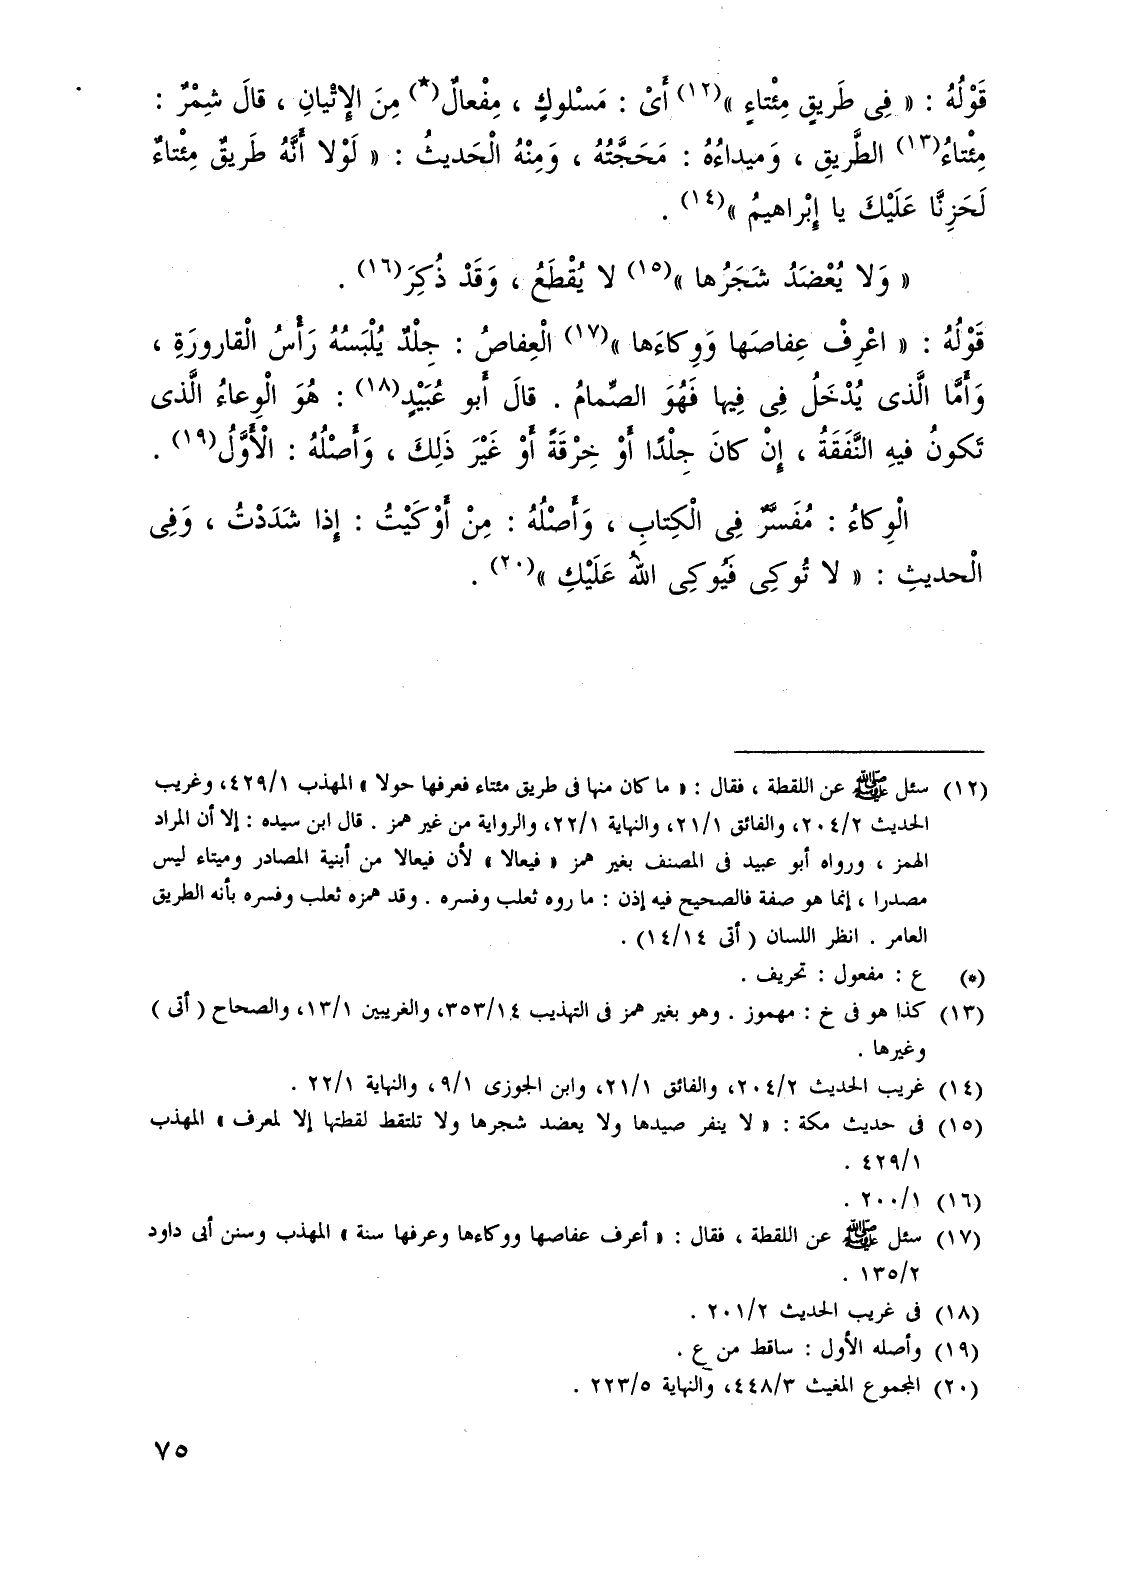 قَوْلُهُ : « فِى طَرِيقٍ مِئْتاءٍ »(١٢) أَىْ : مَسْلوكٍ ، مِفْعالٌ(*) مِنَ الإِتْيانِ ، قالَ شِمْرٌ :
مِئْتاءُ(١٣) الطَّريقِ ، وَميداءُهُ : مَحَجَّتُهُ ، وَمِنْهُ الْحَديثُ : « لَوْلا أَنَّهُ طَريقٌ مِئْتاءٌ
لَحَزِنَّا عَلَيْكَ يا إِبْراهيمُ »(١٤) .
« وَلا يُعْضَدُ شَجَرُها »(١٥) لا يُقْطَعُ ، وَقَدْ ذُكِرَ(١٦) .
قَوْلُهُ : « اعْرِفْ عِفاصَها وَوِكاءَها »(١٧) الْعِفاصُ : جِلْدٌ يُلْبَسُهُ رَأْسُ الْقارورَةِ ،
وَأَمَّا الَّذى يُدْخَلُ فِى فِيها فَهُوَ الصِّمامُ . قالَ أَبو عُبَيْدٍ(١٨) : هُوَ الْوِعاءُ الَّذى
تَكونُ فيهِ النَّفَقَةُ ، إِنْ كانَ جِلْدًا أَوْ خِرْقَةً أَوْ غَيْرَ ذَلِكَ ، وَأَصْلُهُ : الْأَوَّلُ(١٩) .
الْوِكاءُ : مُفَسَّرٌ فِى الْكِتابِ ، وَأَصْلُهُ : مِنْ أَوْكَيْتُ : إِذا شَدَدْتُ ، وَفِى
الْحديثِ : « لا تُوكِى فَيُوكِى اللهُ عَلَيْكِ »(٢٠) .
(١٢) سئل ﷺ عن اللقطة ، فقال : « ما كان منها فى طريق مئتاء فعرفها حولا » المهذب ٤٢٩/١، وغريب
الحديث ٢٠٤/٢، والفائق ٢١/١، والنهاية ٢٢/١، والرواية من غير همز . قال ابن سيده : إلا أن المراد
الهمز ، ورواه أبو عبيد فى المصنف بغير همز « فيعالا » لأن فيعالا من أبنية المصادر وميتاء ليس
مصدرا ، إنما هو صفة فالصحيح فيه إذن : ما روه ثعلب وفسره . وقد همزه ثعلب وفسره بأنه الطريق
العامر . انظر اللسان ( أتى ١٤/١٤) .
(*) ع : مفعول : تحريف .
(١٣) كذا هو فى خ : مهموز . وهو بغير همز فى التهذيب ٣٥٣/١٤، والغريبين ١٣/١، والصحاح ( أتى )
وغيرها .
(١٤) غريب الحديث ٢٠٤/٢، والفائق ٢١/١، وابن الجوزى ٩/١، والنهاية ٢٢/١ .
(١٥) فى حديث مكة : « لا ينفر صيدها ولا يعضد شجرها ولا تلتقط لقطتها إلا لمعرف » المهذب
٤٢٩/١ .
(١٦) ٢٠٠/١ .
(١٧) سئل ﷺ عن اللقطة ، فقال : « أعرف عفاصها ووكاءها وعرفها سنة » المهذب وسنن أبى داود
١٣٥/٢ .
(١٨) فى غريب الحديث ٢٠١/٢ .
(١٩) وأصله الأول : ساقط من ع .
(٢٠) المجموع المغيث ٤٤٨/٣، والنهاية ٢٢٣/٥ .
٧٥